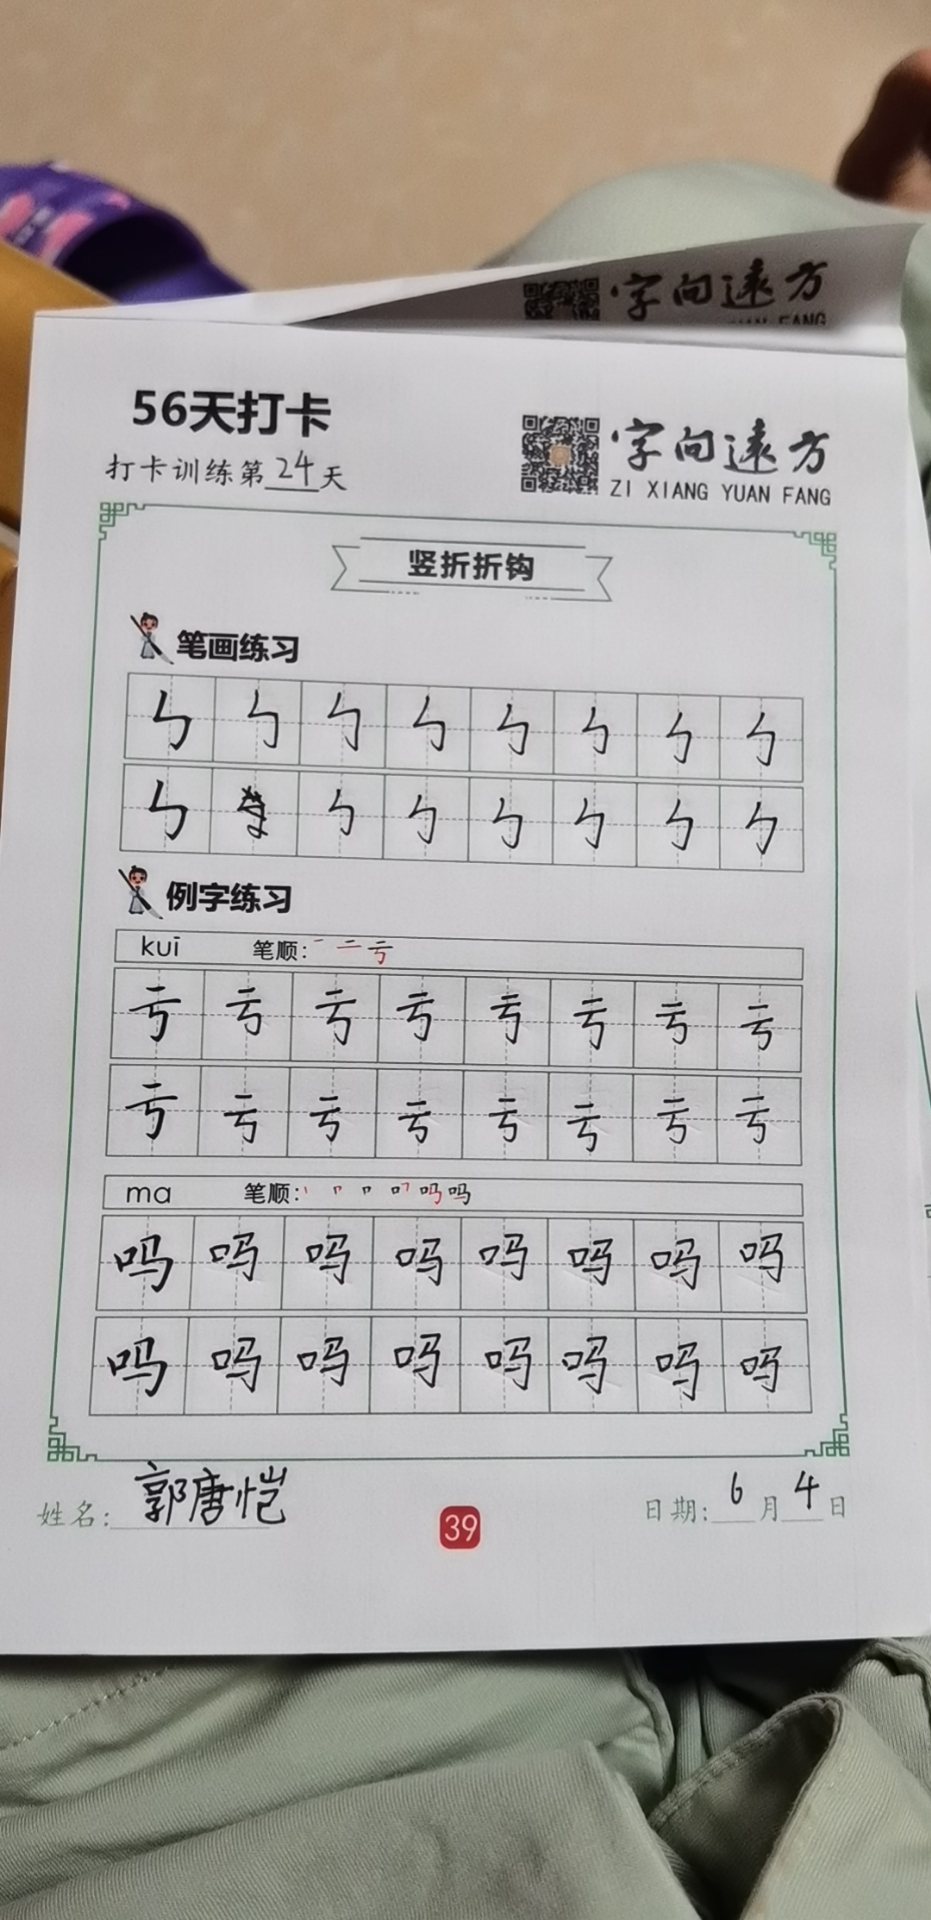 字向远方
56天打卡
打卡训练第24天
字向远方
ZI XIANG YUAN FANG
竖折折钩
笔画练习
㇉ ㇉ ㇉ ㇉ ㇉ ㇉ ㇉ ㇉
㇉ ㇉ ㇉ ㇉ ㇉ ㇉ ㇉
例字练习
kuī 笔顺: 一 二 亏
亏 亏 亏 亏 亏 亏 亏 亏
亏 亏 亏 亏 亏 亏 亏 亏
ma 笔顺:
吗 吗 吗 吗 吗 吗 吗 吗
吗 吗 吗 吗 吗 吗 吗 吗
姓名: 郭唐恺
39
日期: 6月4日